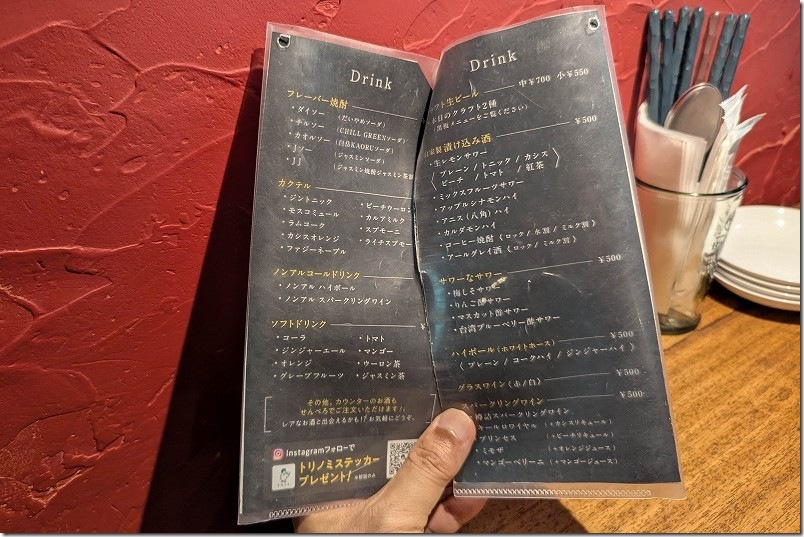 Drink
フレーバー焼酎
・ダイソー （だいやめソーダ）
・チルソー （CHILL GREENソーダ）
・カオルソー （白岳KAORUソーダ）
・Jソー （ジャスミンソーダ）
・JJ （ジャスミン焼酎ジャスミン茶割
カクテル
・ジントニック ・ピーチウーロン
・モスコミュール ・カルアミルク
・ラムコーク ・スプモーニ
・カシスオレンジ ・ライチスプモー
・ファジーネーブル
ノンアルコールドリンク
・ノンアル ハイボール
・ノンアル スパークリングワイン
ソフトドリンク ¥
・コーラ ・トマト
・ジンジャーエール ・マンゴー
・オレンジ ・ウーロン茶
・グレープフルーツ ・ジャスミン茶
その他、カウンターのお酒も
せんべろでご注文いただけます！
レアなお酒と出会えるかも!? お気軽にどうぞ。
Instagramフォローで
トリノミステッカー
プレゼント!
Drink
フト生ビール 中¥700 小¥550
本日のクラフト2種
（黒板メニューをご覧ください）
自家製漬け込み酒 ¥500
・生レモンサワー
〈 プレーン / トニック / カシス
ピーチ / トマト / 紅茶 〉
・ミックスフルーツサワー
・アップルシナモンハイ
・アニス（八角）ハイ
・カルダモンハイ
・コーヒー焼酎（ロック / 水割 / ミルク割）
・アールグレイ酒（ロック / ミルク割）
サワーなサワー ¥500
・梅しそサワー
・りんご酢サワー
・マスカット酢サワー
・台湾ブルーベリー酢サワー
ハイボール（ホワイトホース） ¥500
〈 プレーン / コークハイ / ジンジャーハイ 〉
グラスワイン（赤/白） ¥500
パークリングワイン ¥500
樽詰スパークリングワイン
ールロワイヤル （+カシスリキュール）
プリンセス （+ピーチリキュール）
・ミモザ （+オレンジジュース）
・マンゴーベリーニ （+マンゴージュース）